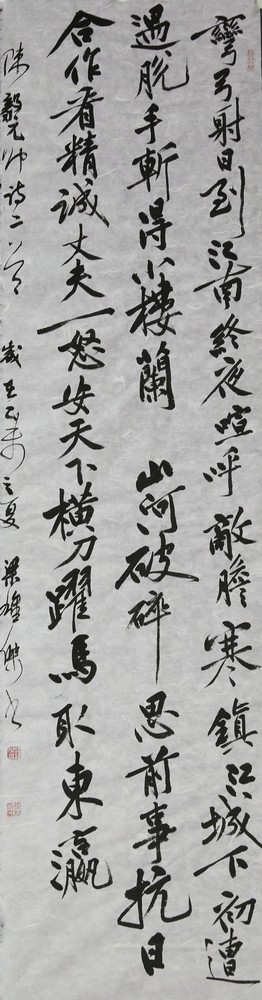 彎弓射日到江南終夜喧呼敵膽寒鎮江城下初遭
遇脫手斬得小樓蘭 山河破碎思前事抗日
合作看精誠丈夫一怒安天下橫刀躍馬取東瀛
陳毅元帥詩二首 歲在乙未之夏 梁雄傑書